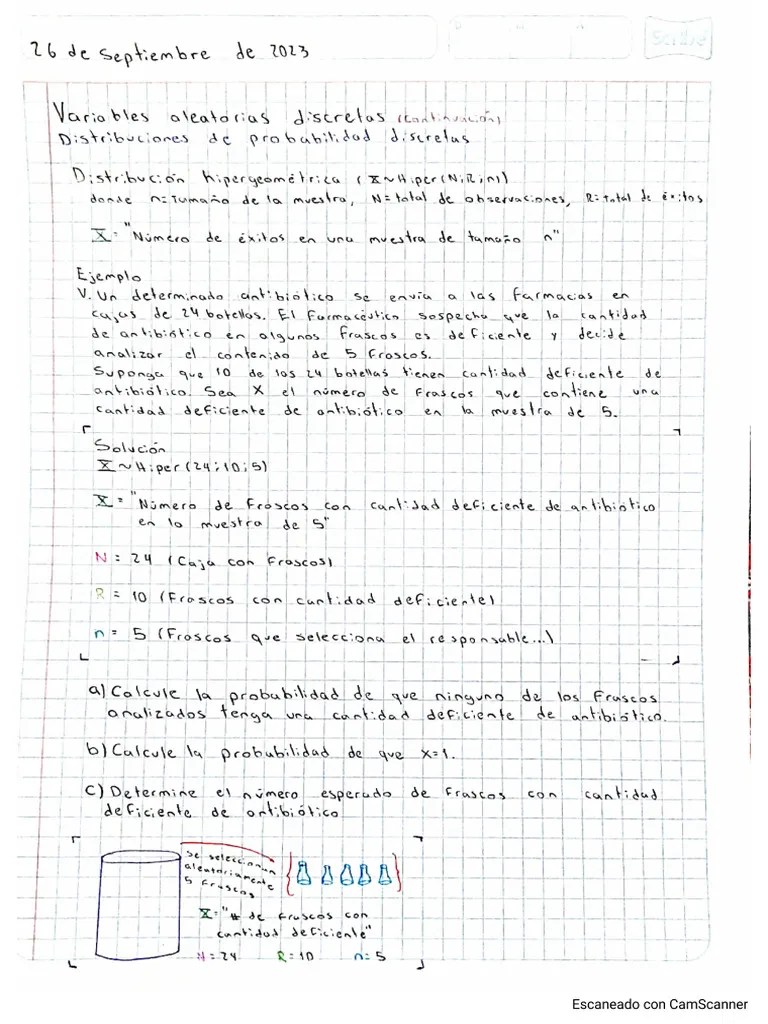 26 de Septiembre de 2023
Scribe
Variables aleatorias discretas (continuación)
Distribuciones de probabilidad discretas
Distribución hipergeométrica (X~Hiper(N;R;n))
donde n=Tamaño de la muestra, N=total de observaciones, R=total de éxitos
X="Número de éxitos en una muestra de tamaño n"
Ejemplo
V. Un determinado antibiótico se envía a las farmacias en
cajas de 24 botellas. El Farmacéutico sospecha que la cantidad
de antibiótico en algunos frascos es deficiente y decide
analizar el contenido de 5 frascos.
Suponga que 10 de las 24 botellas tienen cantidad deficiente de
antibiótico. Sea X el número de frascos que contiene una
cantidad deficiente de antibiótico en la muestra de 5.
Solución
X~Hiper(24;10;5)
X="Número de frascos con cantidad deficiente de antibiótico
en la muestra de 5"
N = 24 (Caja con frascos)
R = 10 (Frascos con cantidad deficiente)
n = 5 (Frascos que selecciona el responsable...)
a) Calcule la probabilidad de que ninguno de los frascos
analizados tenga una cantidad deficiente de antibiótico.
b) Calcule la probabilidad de que x=1.
c) Determine el número esperado de frascos con cantidad
deficiente de antibiótico
se seleccionan
aleatoriamente
5 frascos
X="# de frascos con
cantidad deficiente"
N=24 R=10 n=5
Escaneado con CamScanner